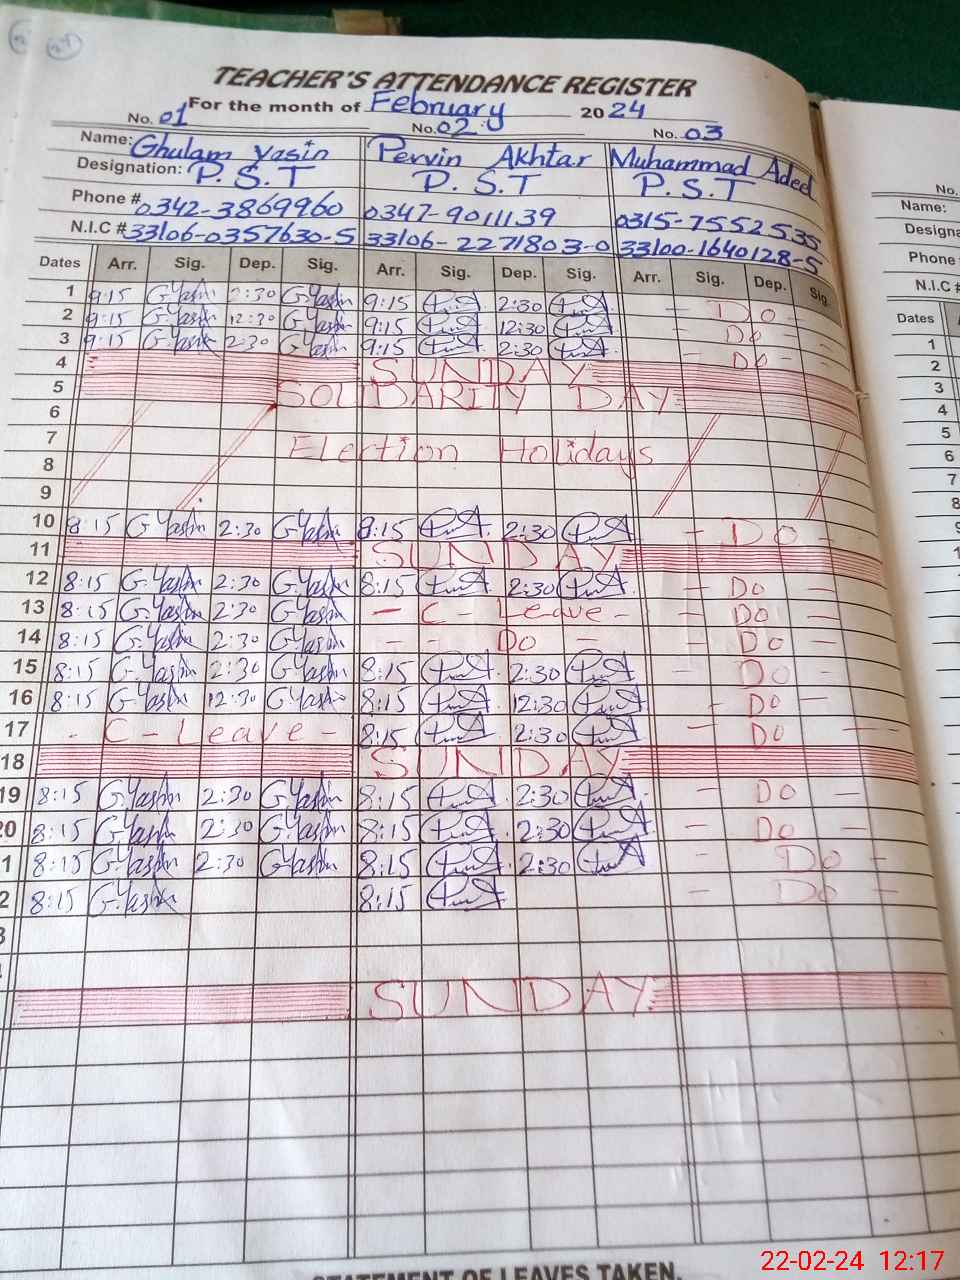 TEACHER'S ATTENDANCE REGISTER
For the month of February 2024
No. 01 No. 02 No. 03
Name: Ghulam Yasin Pervin Akhtar Muhammad Adeel
Designation: P.S.T P.S.T P.S.T
Phone # 0342-3869960 0347-9011139 0315-7552535
N.I.C # 33106-0357630-5 33106-2271803-0 33100-1640128-5
Dates Arr. Sig. Dep. Sig. Arr. Sig. Dep. Sig. Arr. Sig. Dep. Sig.
1 9:15 G.Yasin 2:30 G.Yasin 9:15 2:30 - Do -
2 9:15 G.Yasin 12:30 G.Yasin 9:15 12:30 - Do -
3 9:15 G.Yasin 2:30 G.Yasin 9:15 2:30 - Do -
4 SUNDAY
5 SOLIDARITY DAY
6
7 Election Holidays
8
9
10 8:15 G.Yasin 2:30 G.Yasin 8:15 2:30 - Do -
11 SUNDAY
12 8:15 G.Yasin 2:30 G.Yasin 8:15 2:30 - Do -
13 8:15 G.Yasin 2:30 G.Yasin - C - Leave - - Do -
14 8:15 G.Yasin 2:30 G.Yasin - - Do - - Do -
15 8:15 G.Yasin 2:30 G.Yasin 8:15 2:30 - Do -
16 8:15 G.Yasin 12:30 G.Yasin 8:15 12:30 - Do -
17 - C - Leave - 8:15 2:30 - Do -
18 SUNDAY
19 8:15 G.Yasin 2:30 G.Yasin 8:15 2:30 - Do -
20 8:15 G.Yasin 2:30 G.Yasin 8:15 2:30 - Do -
1 8:15 G.Yasin 2:30 G.Yasin 8:15 2:30 - Do -
2 8:15 G.Yasin 8:15 - Do -
3
SUNDAY
STATEMENT OF LEAVES TAKEN.
No.
Name:
Designa
Phone
N.I.C #
Dates
1
2
3
4
5
6
7
8
9
22-02-24 12:17